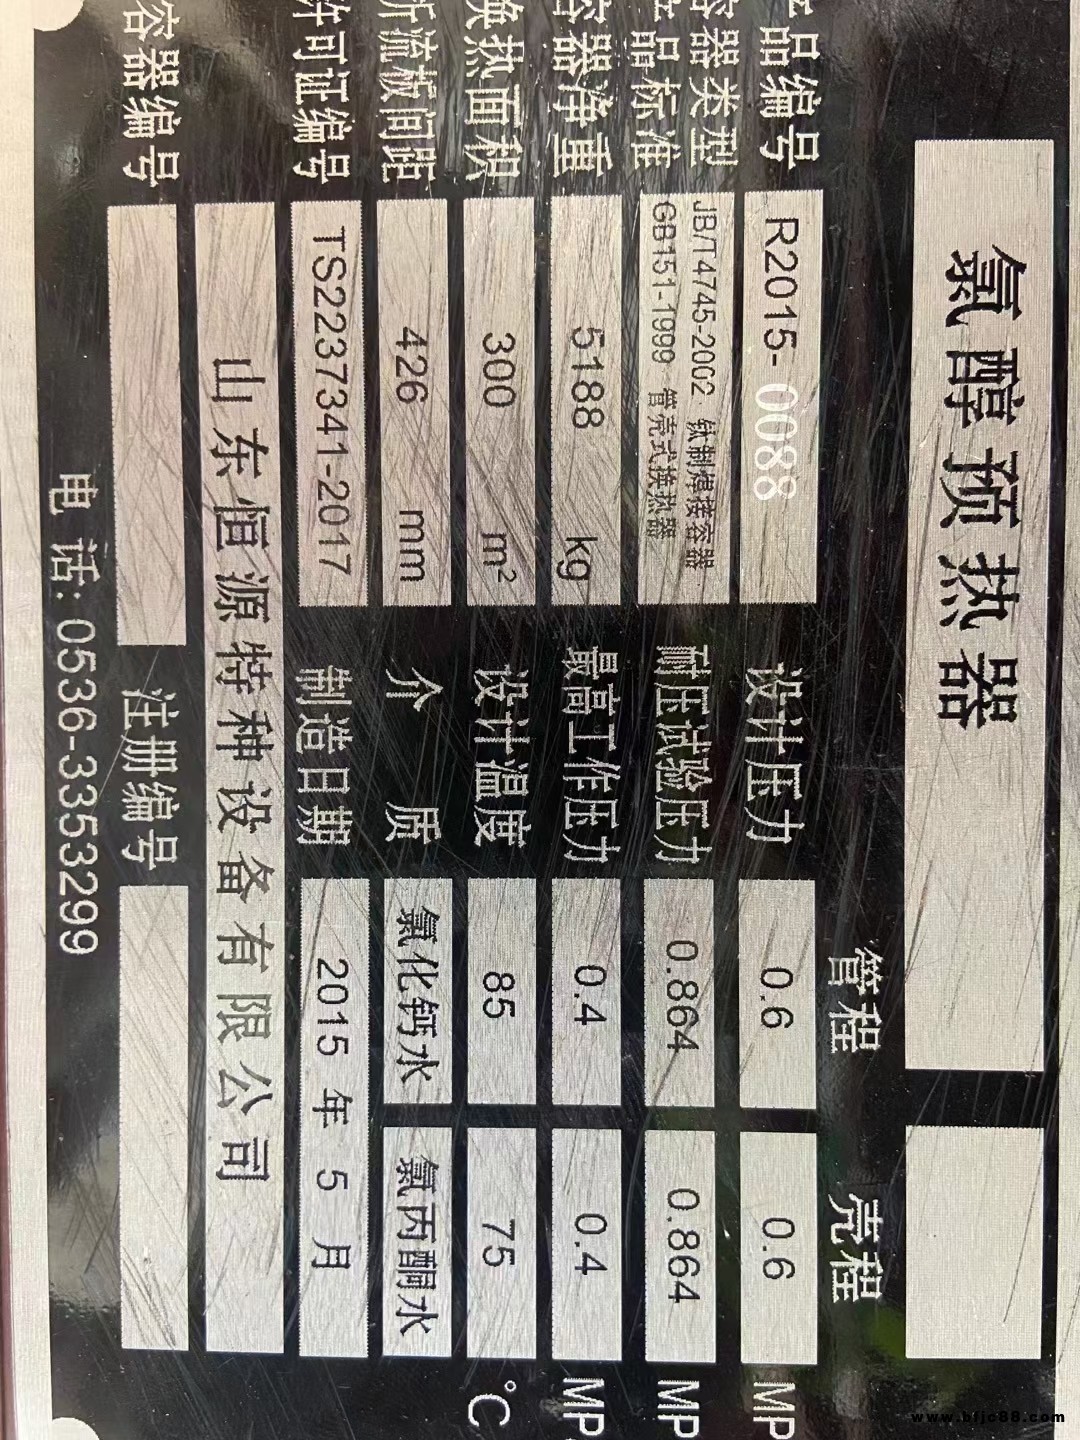 氯醇预热器
管程 壳程
产品编号 R2015-0088 设计压力 0.6 0.6 MP
容器类型 JB/T4745-2002 钛制焊接容器
产品标准 GB151-1999 管壳式换热器 耐压试验压力 0.864 0.864 MP
容器净重 5188 kg 最高工作压力 0.4 0.4 MP
换热面积 300 m² 设计温度 85 75 ℃
折流板间距 426 mm 介质 氯化钙水 氯丙酮水
许可证编号 TS2237341-2017 制造日期 2015 年 5 月
山东恒源特种设备有限公司
容器编号 注册编号
电话: 0536-3353299
www.bfjc88.com